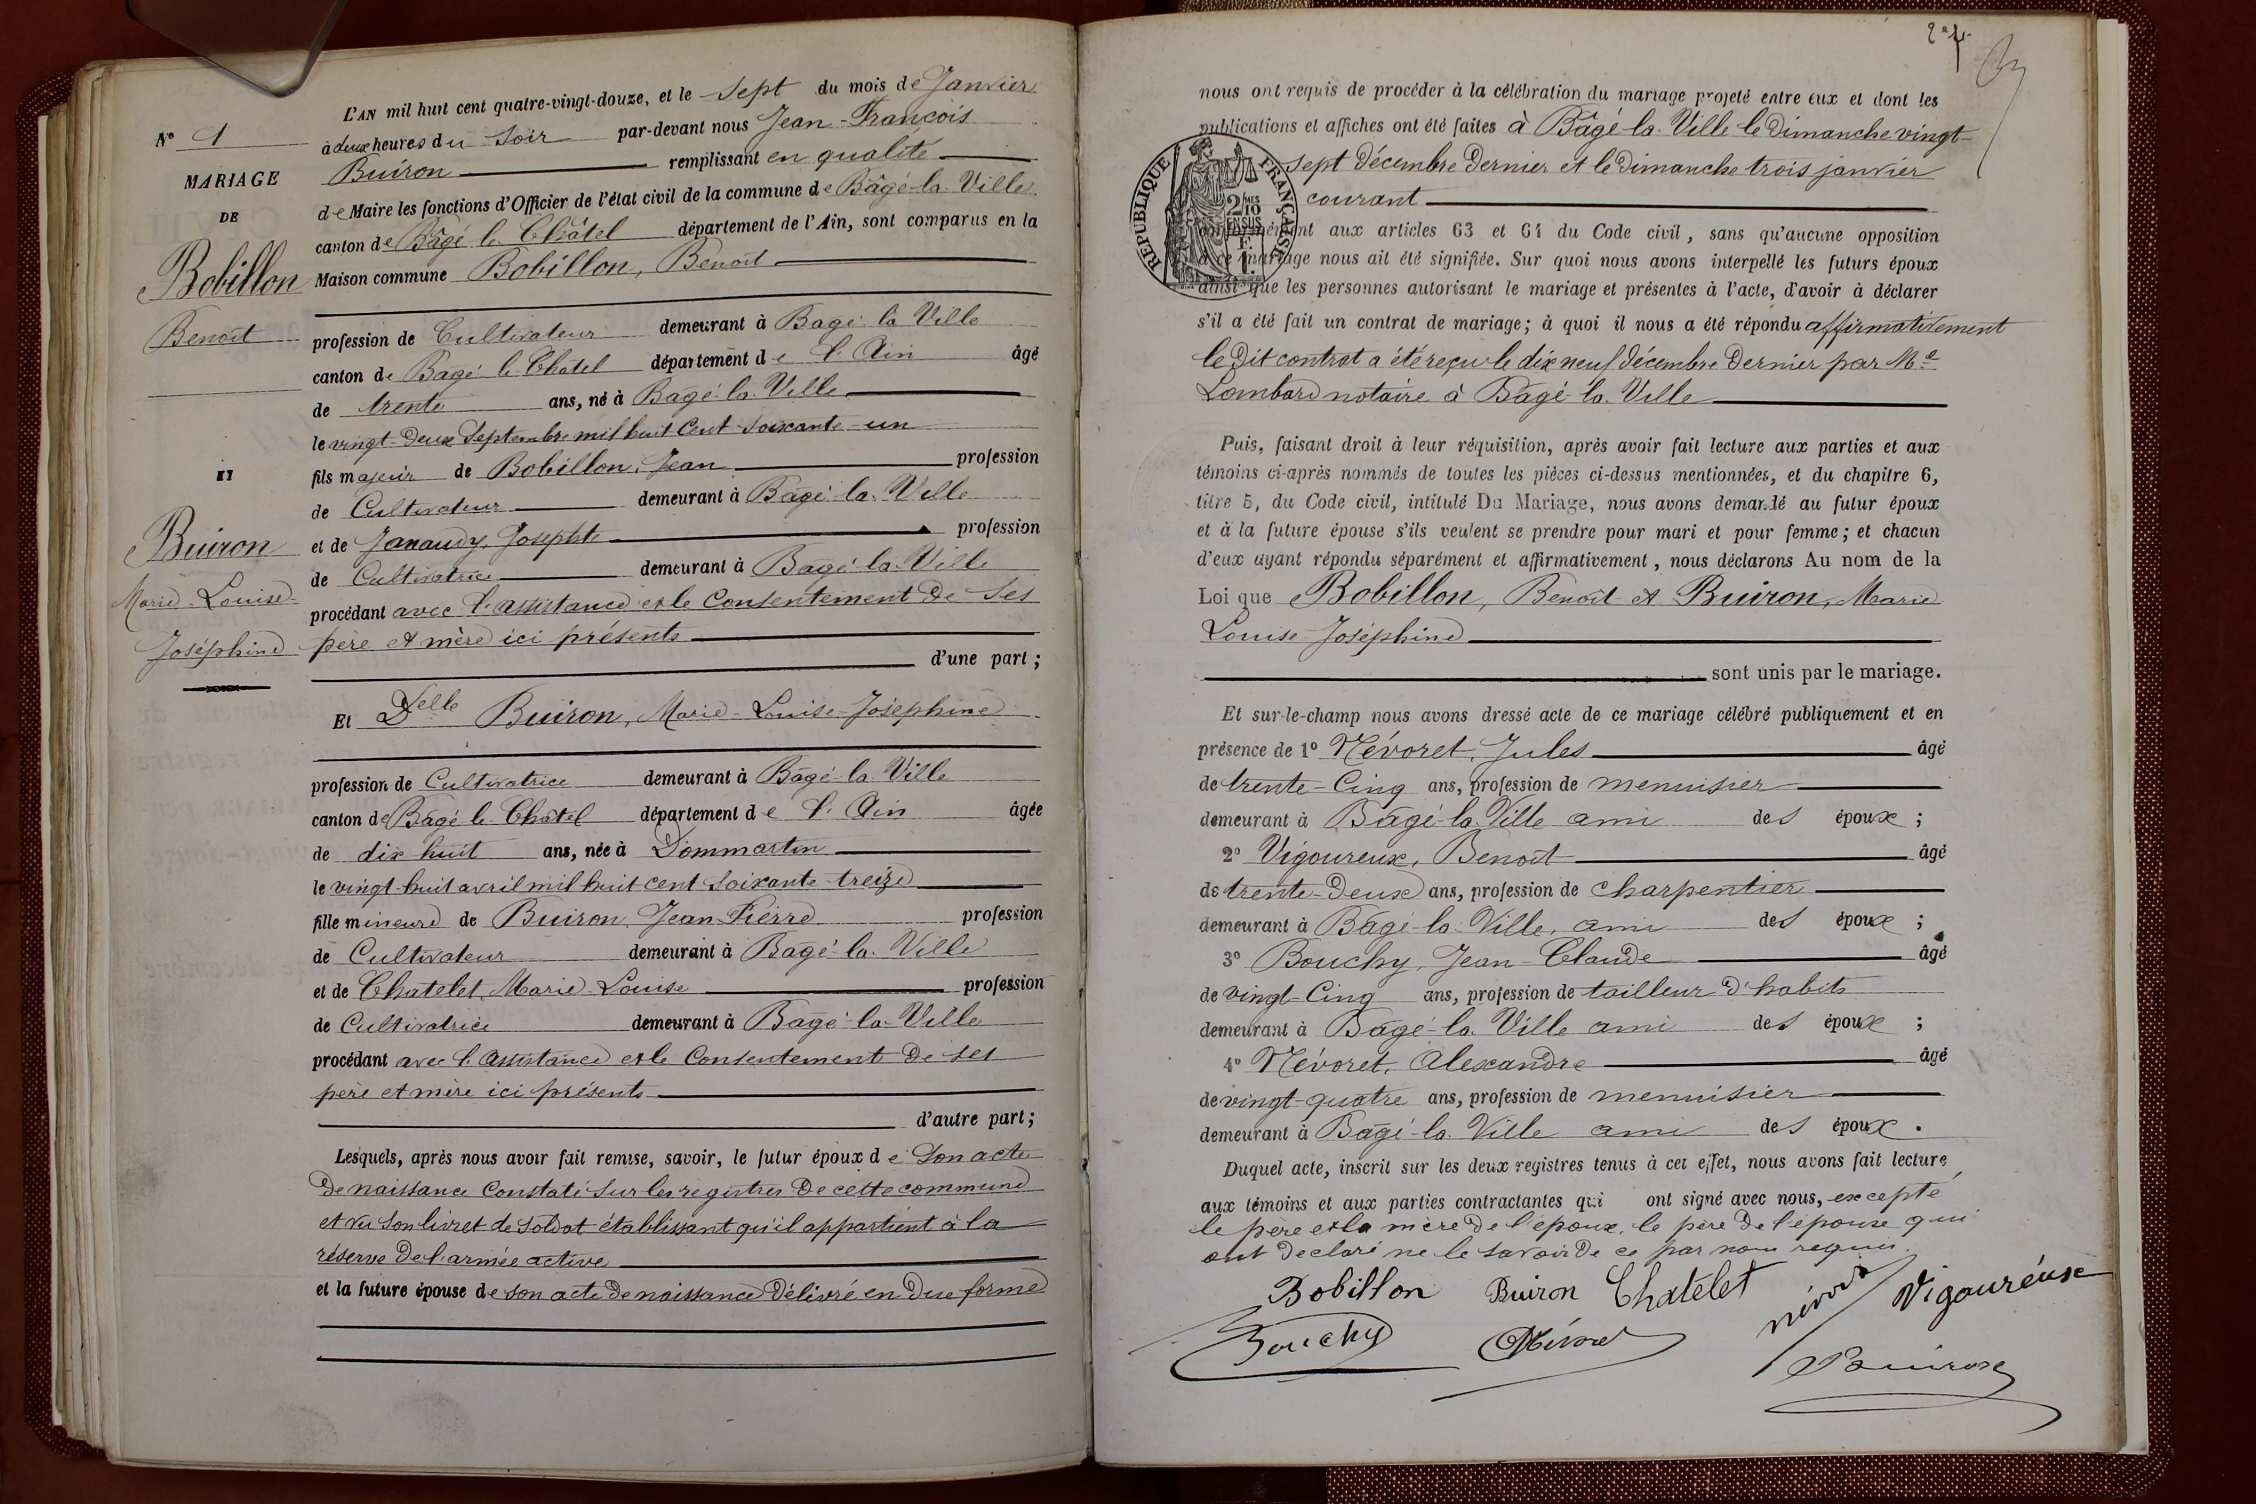 N° 1
MARIAGE
DE
Bobillon
Benoît
ET
Buiron
Marie-Louise-
Joséphine
L'AN mil huit cent quatre-vingt-douze, et le sept du mois de Janvier
à deux heures du soir par-devant nous Jean-François
Buiron remplissant en qualité
de Maire les fonctions d'Officier de l'état civil de la commune de Bâgé-la-Ville
canton de Bâgé le Châtel département de l'Ain, sont comparus en la
Maison commune Bobillon, Benoît
profession de Cultivateur demeurant à Bagé-la-Ville
canton de Bagé le Chatel département de l'Ain âgé
de trente ans, né à Bagé-la-Ville
le vingt-deux Septembre mil huit cent soixante-un
fils majeur de Bobillon, Jean profession
de Cultivateur demeurant à Bagé-la-Ville
et de Janaudy, Josephte profession
de Cultivatrice demeurant à Bagé-la-Ville
procédant avec l'assistance et le Consentement de ses
père et mère ici présents
d'une part ;
Et Delle Buiron, Marie-Louise-Joséphine
profession de Cultivatrice demeurant à Bâgé-la-Ville
canton de Bâgé le Châtel département de l'Ain âgée
de dix huit ans, née à Dommartin
le vingt-huit avril mil huit cent soixante-treize
fille mineure de Buiron, Jean-Pierre profession
de Cultivateur demeurant à Bagé-la-Ville
et de Chatelet, Marie-Louise profession
de Cultivatrice demeurant à Bagé-la-Ville
procédant avec l'assistance et le Consentement de ses
père et mère ici présents
d'autre part ;
Lesquels, après nous avoir fait remise, savoir, le futur époux de son acte
de naissance Constaté sur les registres de cette commune
et vu son livret de soldat établissant qu'il appartient à la
réserve de l'armée active
et la future épouse de son acte de naissance délivré en due forme
nous ont requis de procéder à la célébration du mariage projeté entre eux et dont les
publications et affiches ont été faites à Bâgé-la-Ville le dimanche vingt-
sept décembre dernier et le dimanche trois janvier
courant
RÉPUBLIQUE FRANÇAISE
2/10 EN SUS
1 F.
conformément aux articles 63 et 64 du Code civil, sans qu'aucune opposition
à ce mariage nous ait été signifiée. Sur quoi nous avons interpellé les futurs époux
ainsi que les personnes autorisant le mariage et présentes à l'acte, d'avoir à déclarer
s'il a été fait un contrat de mariage ; à quoi il nous a été répondu affirmativement
le dit contrat a été reçu le dix neuf décembre dernier par Me
Lombard notaire à Bâgé-la-Ville
Puis, faisant droit à leur réquisition, après avoir fait lecture aux parties et aux
témoins ci-après nommés de toutes les pièces ci-dessus mentionnées, et du chapitre 6,
titre 5, du Code civil, intitulé Du Mariage, nous avons demandé au futur époux
et à la future épouse s'ils veulent se prendre pour mari et pour femme ; et chacun
d'eux ayant répondu séparément et affirmativement, nous déclarons Au nom de la
Loi que Bobillon, Benoît et Buiron, Marie
Louise-Joséphine
sont unis par le mariage.
Et sur-le-champ nous avons dressé acte de ce mariage célébré publiquement et en
présence de 1° Névoret, Jules âgé
de trente-cinq ans, profession de menuisier
demeurant à Bâgé-la-Ville ami des époux ;
2° Vigoureux, Benoît âgé
de trente-deux ans, profession de charpentier
demeurant à Bâgé-la-Ville, ami des époux ;
3° Bouchy, Jean-Claude âgé
de vingt-cinq ans, profession de tailleur d'habits
demeurant à Bâgé-la-Ville ami des époux ;
4° Névoret, Alexandre âgé
de vingt-quatre ans, profession de menuisier
demeurant à Bâgé-la-Ville ami des époux.
Duquel acte, inscrit sur les deux registres tenus à cet effet, nous avons fait lecture
aux témoins et aux parties contractantes qui ont signé avec nous, excepté
le père et la mère de l'époux, le père de l'épouse qui
ont déclaré ne le savoir de ce par nous requis.
Bobillon Buiron Chatelet Vigoureux
Bouchy Buiron